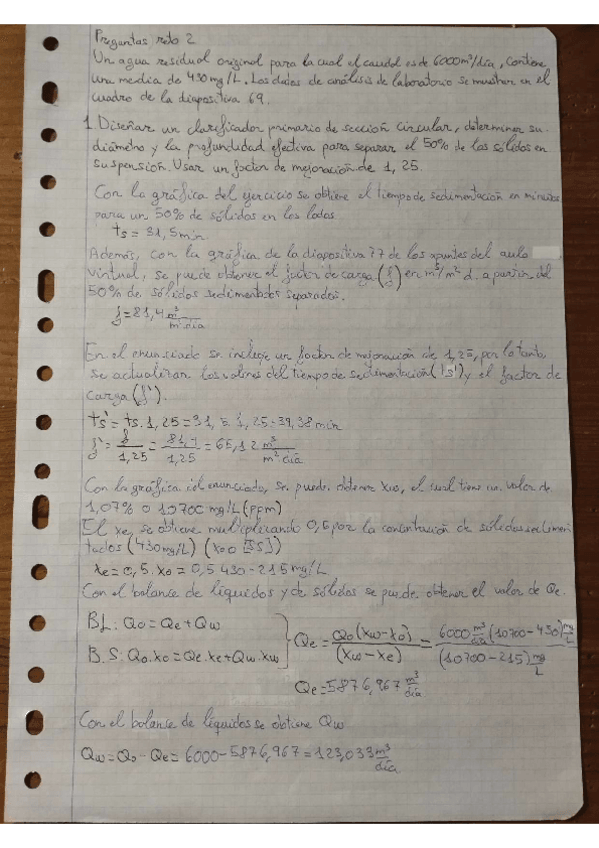 Preguntas reto 2
Un agua residual original para la cual el caudal es de 6000m³/día, contiene
una media de 430mg/L. Los datos de análisis de laboratorio se muestran en el
cuadro de la diapositiva 69.
1. Diseñar un clarificador primario de sección circular, determinar su
diámetro y la profundidad efectiva para separar el 50% de los sólidos en
suspensión. Usar un factor de mejoración de 1,25.
Con la gráfica del ejercicio se obtiene el tiempo de sedimentación en minutos
para un 50% de sólidos en los lodos.
ts = 31,5 min.
Además, con la gráfica de la diapositiva 77 de los apuntes del aula
virtual, se puede obtener el factor de carga (f) en m³/m² d. a partir del
50% de sólidos sedimentados separados.
f = 81,4 m³/m² día
En el enunciado se incluye un factor de mejoración de 1,25, por lo tanto,
se actualizan los valores del tiempo de sedimentación (ts') y el factor de
carga (f').
ts' = ts · 1,25 = 31,5 · 1,25 = 39,38 min
f' = f/1,25 = 81,4/1,25 = 65,12 m³/m² día
Con la gráfica del enunciado, se puede obtener xw, el cual tiene un valor de
1,07% o 10700 mg/L (ppm)
El xe, se obtiene multiplicando 0,5 por la concentración de sólidos sedimen
tados (430mg/L) (xo o [SS])
xe = 0,5 · xo = 0,5 · 430 = 215 mg/L
Con el balance de líquidos y de sólidos se puede obtener el valor de Qe.
BL: Qo = Qe + Qw
B.S: Qo.xo = Qe.xe + Qw.xw
Qe = Qo(xw-xo)/(xw-xe) = 6000 m³/día (10700-430) mg/L / (10700-215) mg/L
Qe = 5876,967 m³/día
Con el balance de líquidos se obtiene Qw
Qw = Qo - Qe = 6000 - 5876,967 = 123,033 m³/día